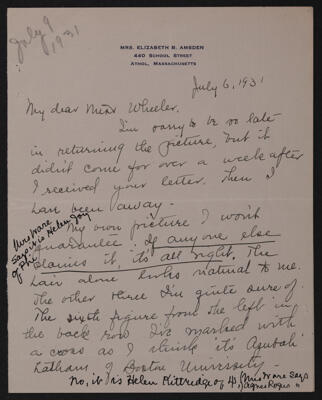 July 9
1931
MRS. ELIZABETH B. AMSDEN
440 SCHOOL STREET
ATHOL, MASSACHUSETTS
July 6, 1931
My dear Miss Wheeler,
I'm sorry to be so late
in returning the picture, but it
didn't come for over a week after
I received your letter. Then I
have been away.
My own picture I won't
guarantee. If anyone else
claims it, it's all right. The
hair alone looks natural to me.
The other three I'm quite sure of.
The sixth figure from the left in
the back row I've marked with
a cross as I think it's
Latham, of Boston University.
Mrs Ware
says it is Helen
of Phi
No, it is Helen Kittredge of (Mrs Ware says
Agnes Rogers)